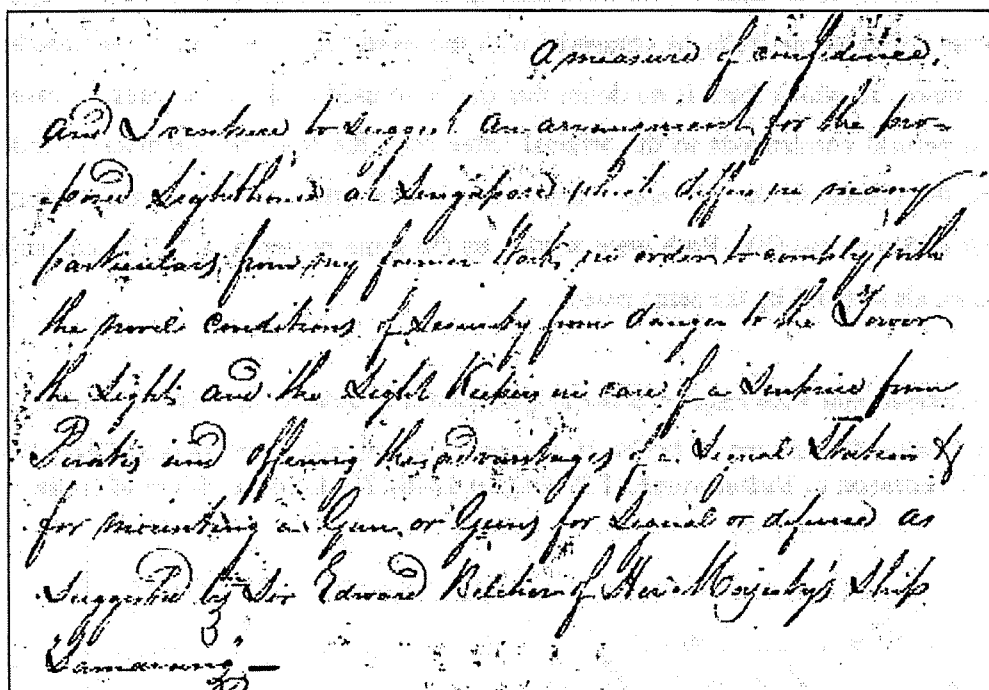 a measure of confidence,
and I venture to suggest an arrangement for the pro-
posed Lighthouse at Singapore which differs in many
particulars, from my former Work, in order to comply with
the novel conditions of Security from danger to the Tower
the Light, and the Light Keepers in case of a Surprise from
Pirates and offering the advantages of a Signal Station &
for mounting a Gun, or Guns for Signal or defence as
Suggested by Sir Edward Belcher of Her Majesty's Ship
"Samarang" —